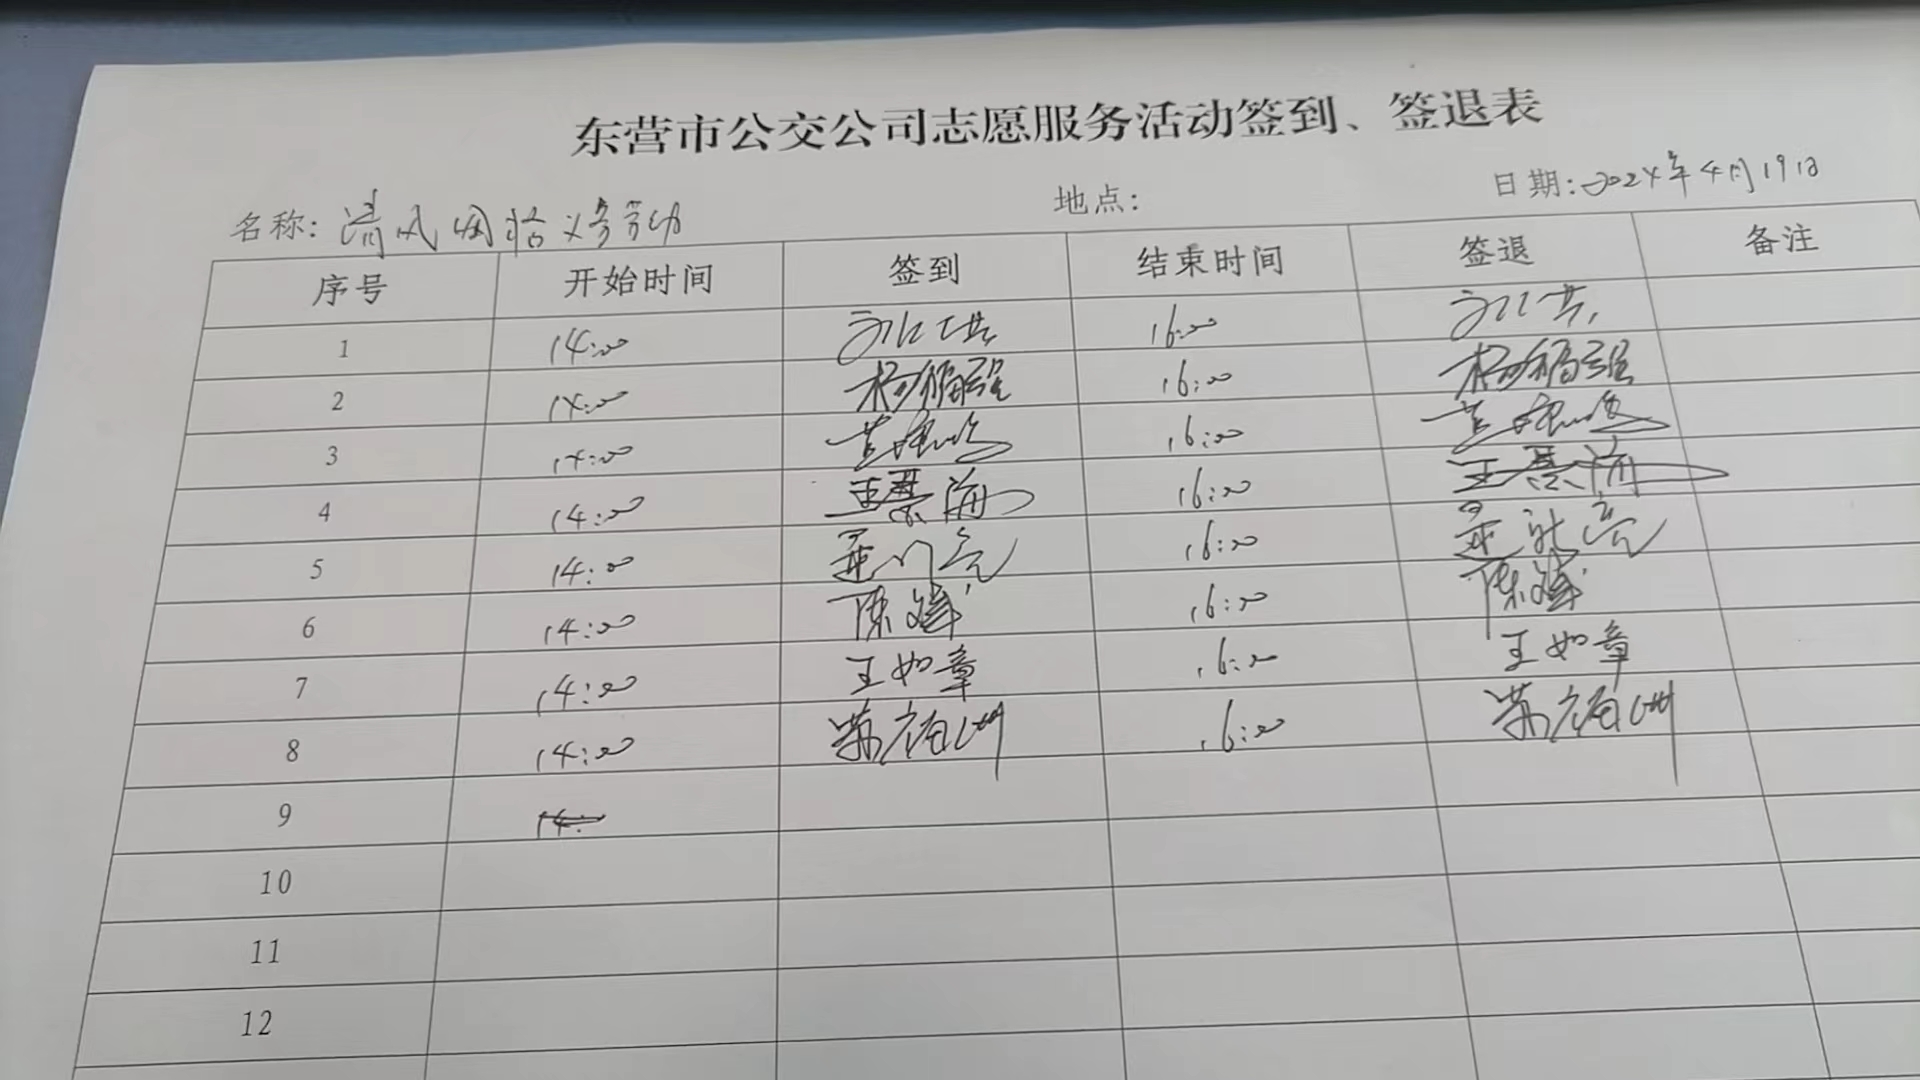 东营市公交公司志愿服务活动签到、签退表
名称: 清风网格义务劳动 地点: 日期: 2024年4月19日
序号 开始时间 签到 结束时间 签退 备注
1 14:00 16:00
2 14:00 杨福强 16:00 杨福强
3 14:00 16:00
4 14:00 王景海 16:00 王景海
5 14:00 16:00
6 14:00 陈斌 16:00 陈斌
7 14:00 王如章 16:00 王如章
8 14:00 16:00
9 14:
10
11
12